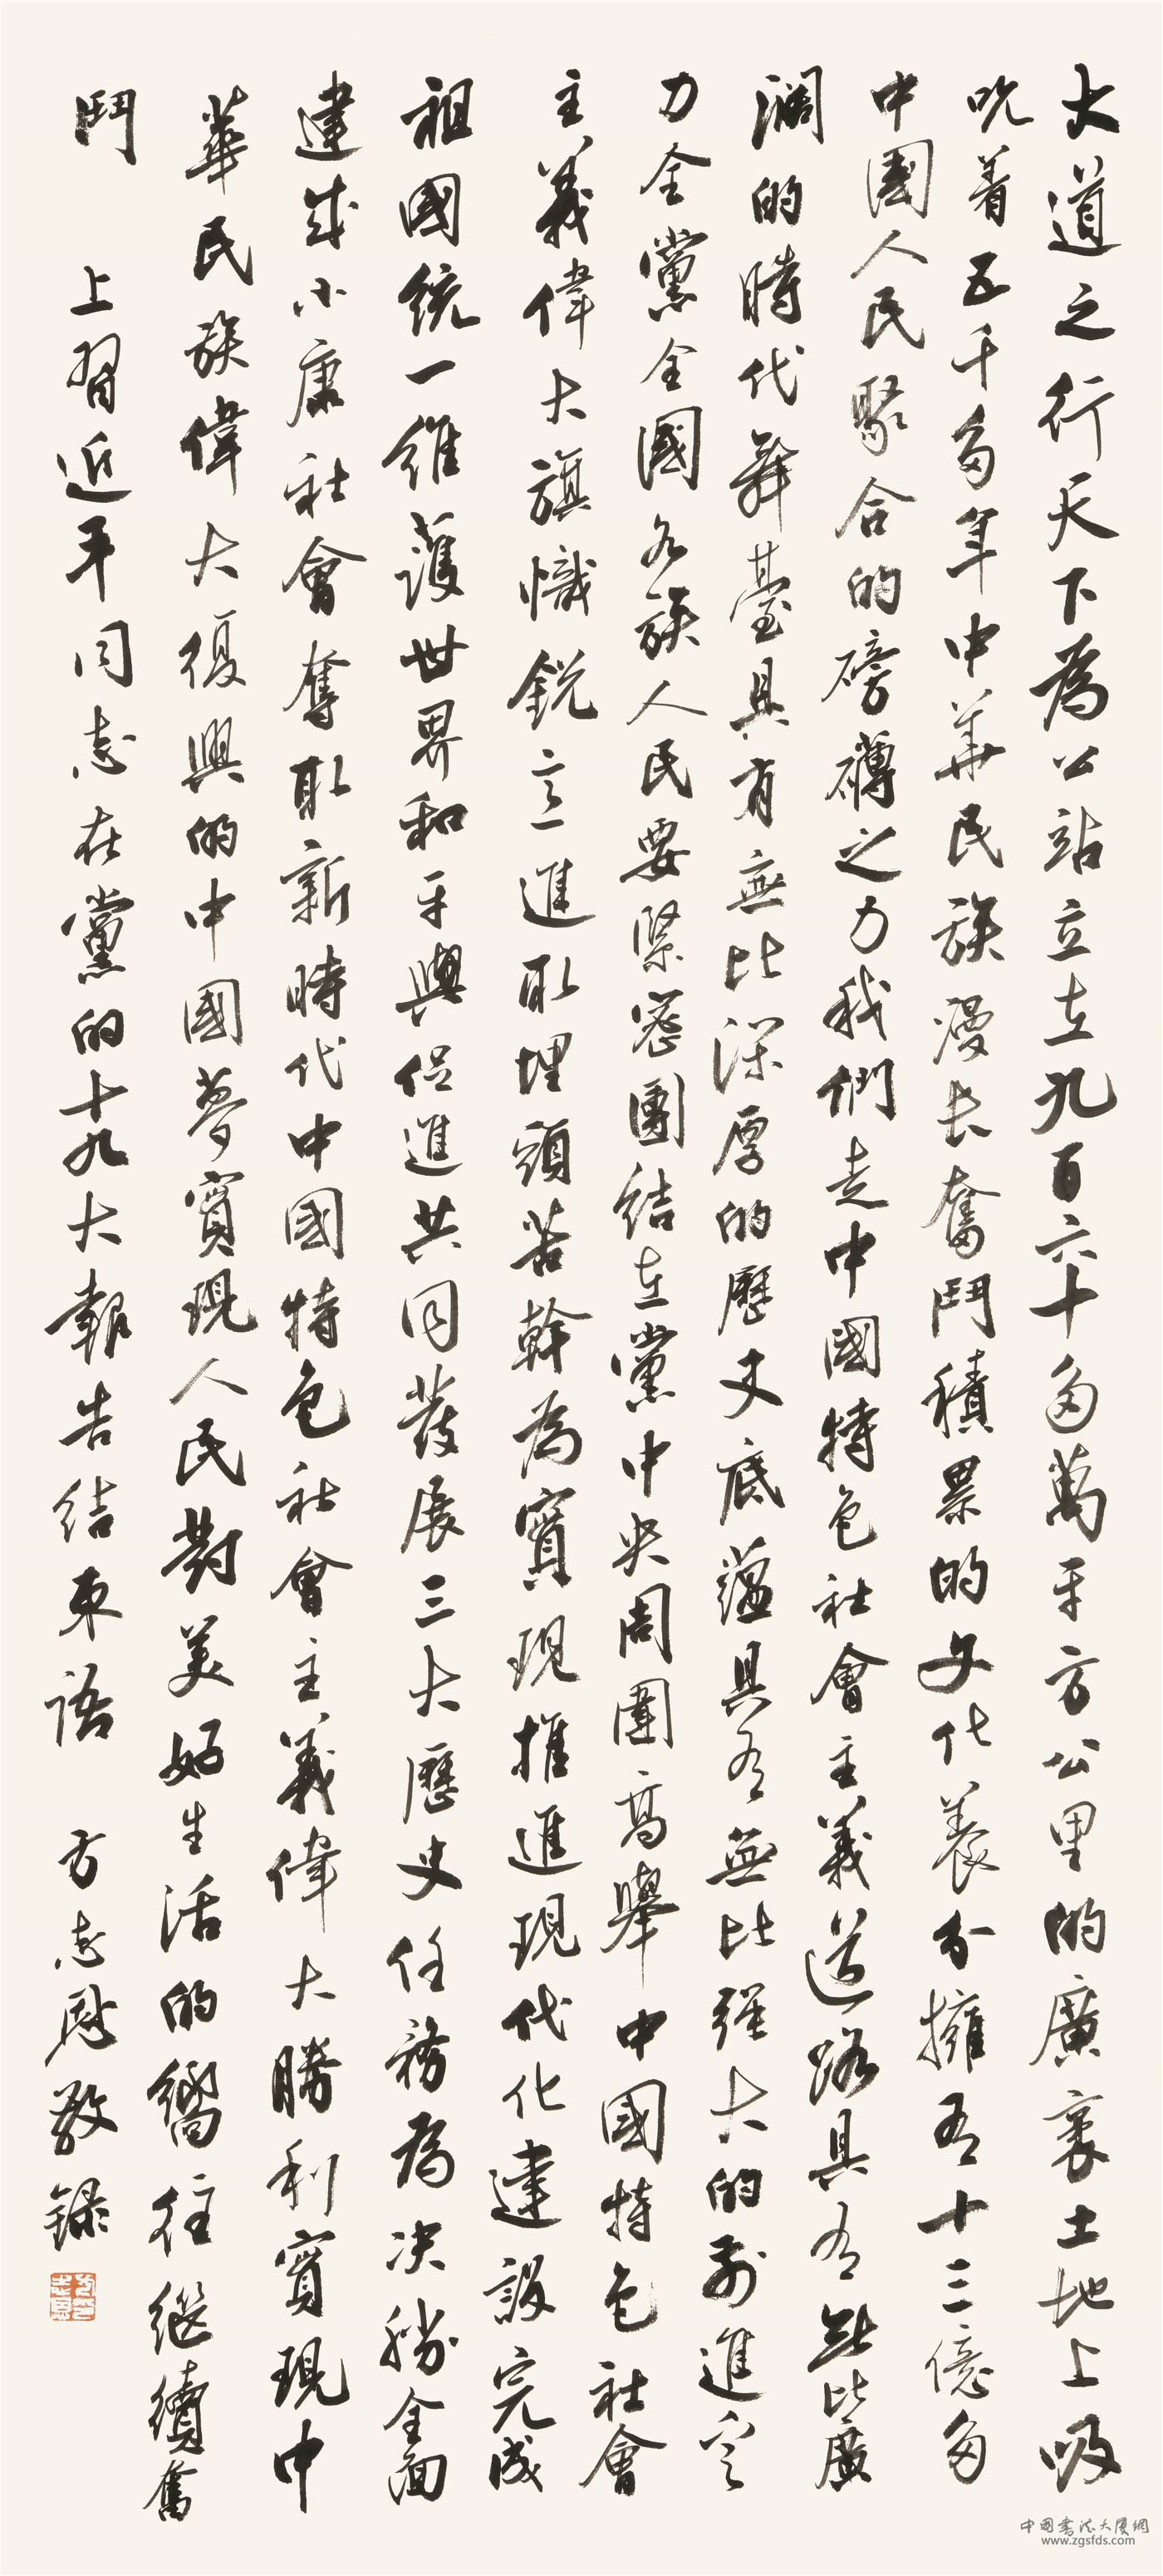 大道之行天下為公站立在九百六十多萬平方公里的廣袤土地上吸
吮着五千多年中華民族漫長奮鬥積累的文化養分擁有十三億多
中國人民聚合的磅礴之力我們走中國特色社會主義道路具有無比廣
濶的時代舞臺具有無比深厚的歷史底藴具有無比强大的前進定
力全黨全國各族人民要緊密團結在黨中央周圍高舉中國特色社會
主義偉大旗幟鋭意進取埋頭苦幹為實現推進現代化建設完成
祖國統一維護世界和平與促進共同發展三大歷史任務為决勝全面
建成小康社會奪取新時代中國特色社會主義偉大勝利實現中
華民族偉大復興的中國夢實現人民對美好生活的嚮往繼續奮
鬥 上習近平同志在黨的十九大報告結束語 方志恩敬録
中国書法大厦網
www.zgsfds.com